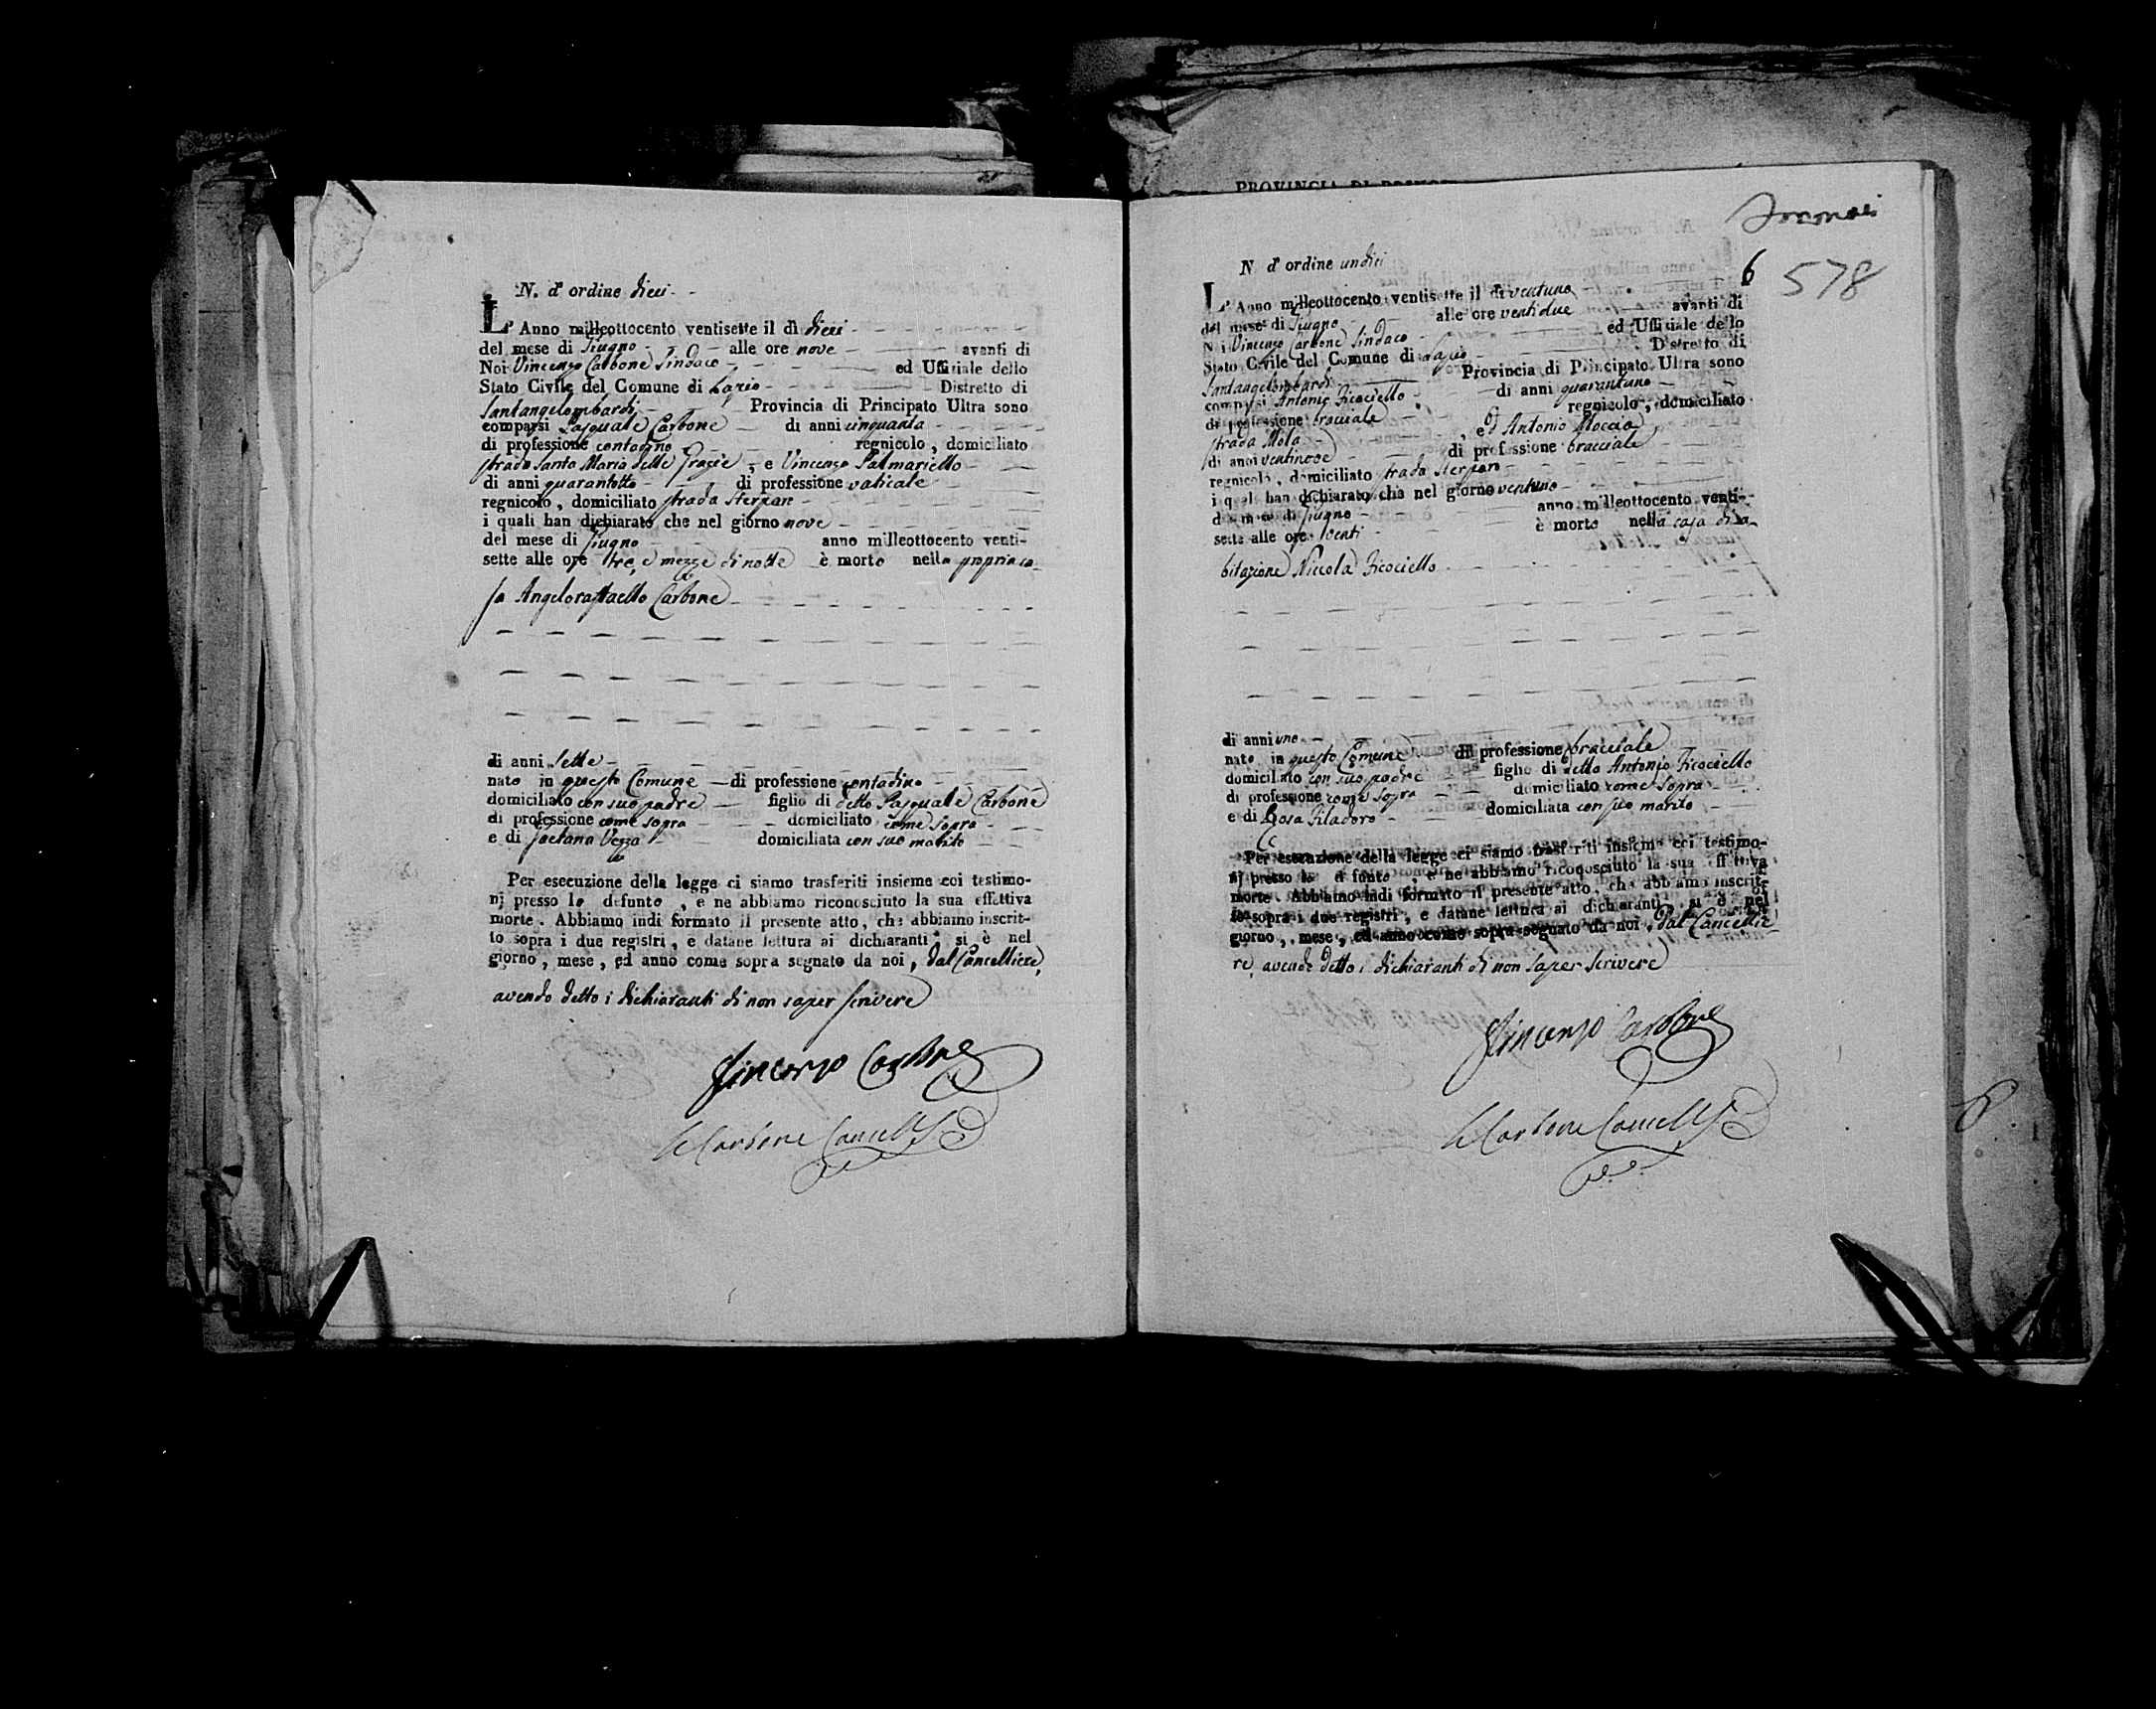 N. d'ordine dieci
L'Anno milleottocento ventisette il dì dieci
del mese di Giugno alle ore nove avanti di
Noi Vincenzo Carbone Sindaco ed Uffiziale dello
Stato Civile del Comune di Lazio Distretto di
Santangelombardi Provincia di Principato Ultra sono
comparsi Pasquale Carbone di anni cinquanta
di professione contadino regnicolo, domiciliato
strada Santa Maria delle Grazie, e Vincenzo Palmariello
di anni quarantotto di professione vaticale
regnicolo, domiciliato strada Sterpan
i quali han dichiarato che nel giorno nove
del mese di Giugno anno milleottocento venti-
sette alle ore tre, e mezze di notte è morto nella propria ca
sa Angeloraffaello Carbone
di anni sette
nato in questo Comune di professione contadino
domiciliato con suo padre figlio di detto Pasquale Carbone
di professione come sopra domiciliato come sopra
e di Gaetana Vezzo domiciliata con suo marito
Per esecuzione della legge ci siamo trasferiti insieme coi testimo-
nj presso lo defunto, e ne abbiamo riconosciuto la sua effettiva
morte. Abbiamo indi formato il presente atto, che abbiamo inscrit-
to sopra i due registri, e datane lettura ai dichiaranti si è nel
giorno, mese, ed anno come sopra segnato da noi, dal Cancelliere,
avendo detto i dichiaranti di non saper scrivere
Vincenzo Carbone
Carbone Cancell
PROVINCIA DI
6 578
N. d'ordine undici
L'Anno milleottocento ventisette il dì ventuno
del mese di Giugno alle ore ventidue avanti di
Noi Vincenzo Carbone Sindaco ed Uffiziale dello
Stato Civile del Comune di Distretto di
Santangelombardi Provincia di Principato Ultra sono
comparsi Antonio Ficociello di anni quarantuno
di professione bracciale regnicolo, domiciliato
strada Mola, ed Antonio Moccia
di anni ventinove di professione bracciale
regnicolo, domiciliato strada Sterpan
i quali han dichiarato che nel giorno ventuno
del mese di Giugno anno milleottocento venti-
sette alle ore venti è morto nella casa di sa
bitazione Niccola Ficociello
di anni uno
nato in questo Comune di professione bracciale
domiciliato con suo padre figlio di detto Antonio Ficociello
di professione come sopra domiciliato come sopra
e di Rosa Filadoro domiciliata con suo marito
Per esecuzione della legge ci siamo trasferiti insieme coi testimo-
nj presso lo defunto, e ne abbiamo riconosciuto la sua effettiva
morte. Abbiamo indi formato il presente atto, che abbiamo inscrit-
to sopra i due registri, e datane lettura ai dichiaranti si è nel
giorno, mese, ed anno come sopra segnato da noi, dal Cancellie
re, avendo detto i dichiaranti di non saper scrivere
Vincenzo Carbone
Carbone Cancell